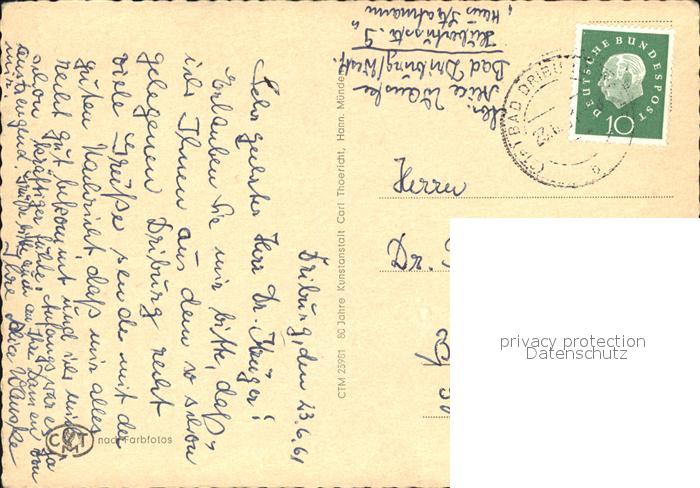 Driburg, den 23.6.61
Sehr geehrter Herr Dr. Krüger!
Erlauben Sie mir bitte, daß
ich Ihnen aus dem so schön
gelegenen Driburg recht
viele Grüße sende mit der
guten Nachricht daß mir alles
recht gut bekommt und ich mich
schon kräftiger fühle. Anfangs war es ja
anstrengend. Grüße bitte auch an Ihre Damen von
mir. Ihre Alice
Abs.
Alice
Bad Driburg/Westf.
Hubertusstr. 9
"Haus
DEUTSCHE BUNDESPOST
10
BAD DRIBU
Herrn
Dr.
CTM 23981 80 Jahre Kunstanstalt Carl Thoericht, Hann. Münden
CTM
nach Farbfotos
privacy protection
Datenschutz